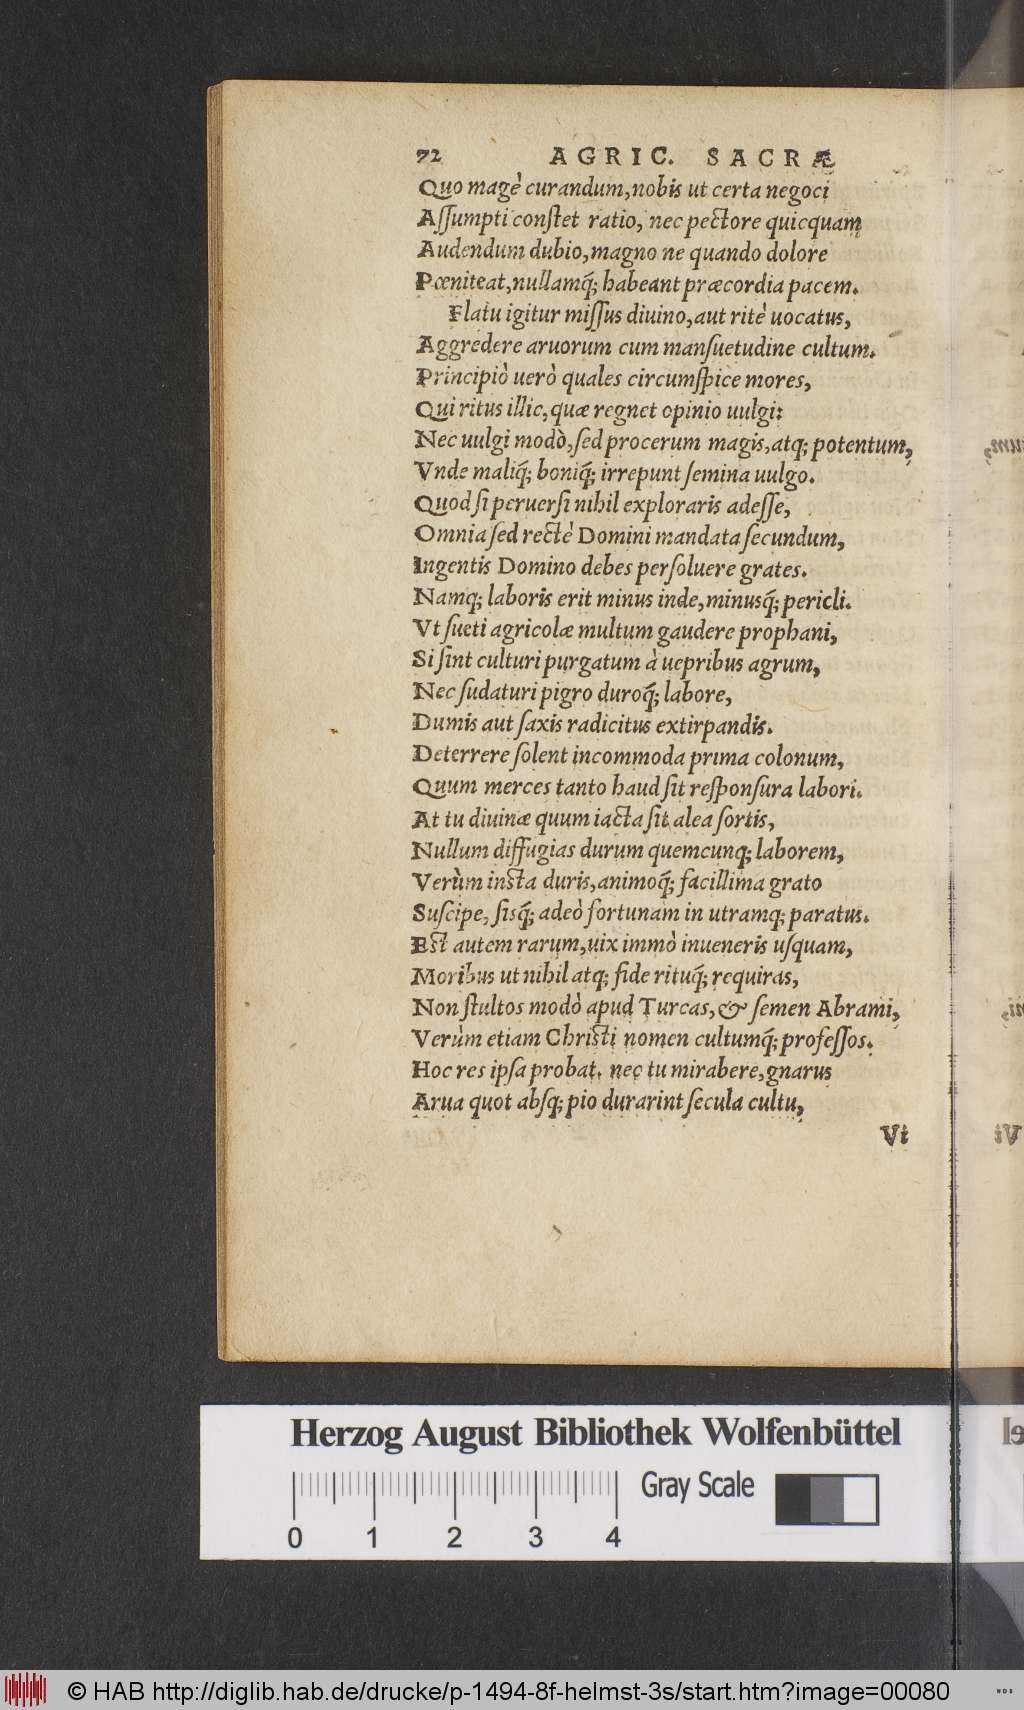 72 AGRIC. SACRÆ
Quo magè curandum, nobis ut certa negoci
Aſſumpti conſtet ratio, nec pectore quicquam
Audendum dubio, magno ne quando dolore
Pœniteat, nullamq́; habeant præcordia pacem.
Flatu igitur miſſus diuino, aut ritè uocatus,
Aggredere aruorum cum manſuetudine cultum.
Principiò uerò quales circumſpice mores,
Qui ritus illic, quæ regnet opinio uulgi:
Nec uulgi modò, ſed procerum magis, atq; potentum,
Vnde maliq́; boniq́; irrepunt ſemina uulgo.
Quod ſi peruerſi nihil exploraris adeſſe,
Omnia ſed rectè Domini mandata ſecundum,
Ingentis Domino debes perſoluere grates.
Namq; laboris erit minus inde, minusq́; pericli.
Vt ſueti agricolæ multum gaudere prophani,
Si ſint culturi purgatum à uepribus agrum,
Nec ſudaturi pigro duroq́; labore,
Dumis aut ſaxis radicitus extirpandis.
Deterrere ſolent incommoda prima colonum,
Quum merces tanto haud ſit reſponſura labori.
At tu diuinæ quum iacta ſit alea ſortis,
Nullum diffugias durum quemcunq; laborem,
Verùm inſta duris, animoq́; facillima grato
Suſcipe, ſisq́; adeò fortunam in utramq; paratus.
Eſt autem rarum, uix immò inueneris uſquam,
Moribus ut nihil atq; fide rituq́; requiras,
Non ſtultos modò apud Turcas, & ſemen Abrami,
Verùm etiam Chriſti nomen cultumq́; profeſſos.
Hoc res ipſa probat. nec tu mirabere, gnarus
Arua quot abſq; pio durarint ſecula cultu,
Vi
Herzog August Bibliothek Wolfenbüttel
Gray Scale
0 1 2 3 4
© HAB http://diglib.hab.de/drucke/p-1494-8f-helmst-3s/start.htm?image=00080